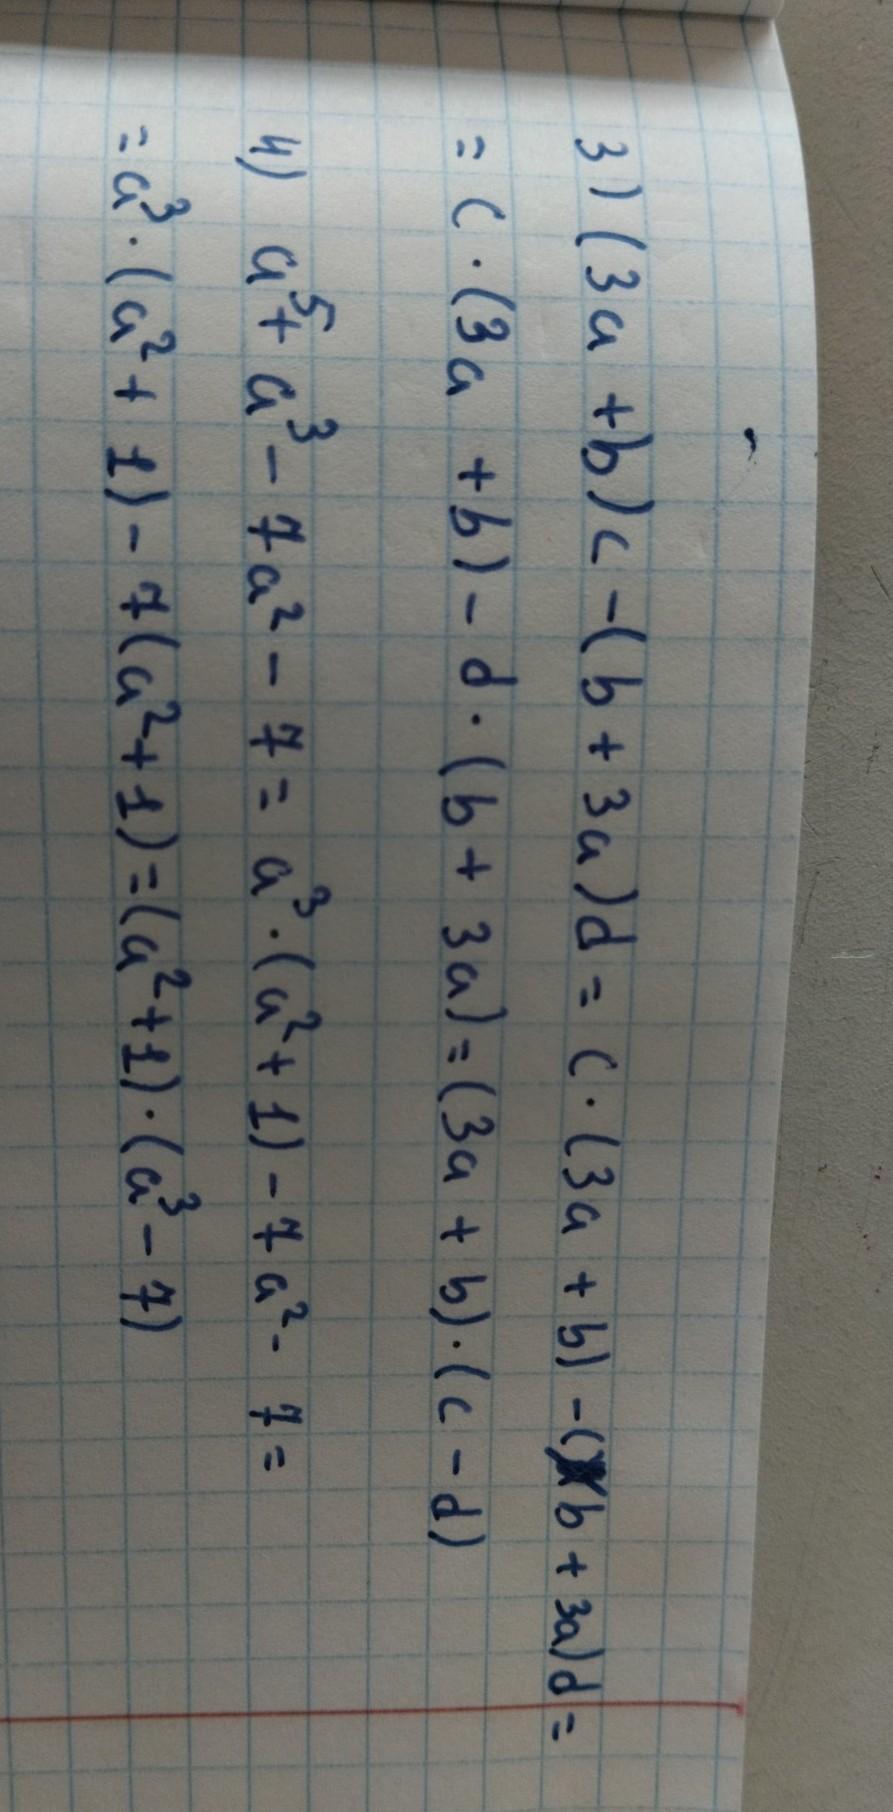 3) (3a + b)c - (b + 3a)d = c · (3a + b) - (b + 3a)d =
= c · (3a + b) - d · (b + 3a) = (3a + b) · (c - d)
4) a⁵ + a³ - 7a² - 7 = a³ · (a² + 1) - 7a² - 7 =
= a³ · (a² + 1) - 7(a² + 1) = (a² + 1) · (a³ - 7)